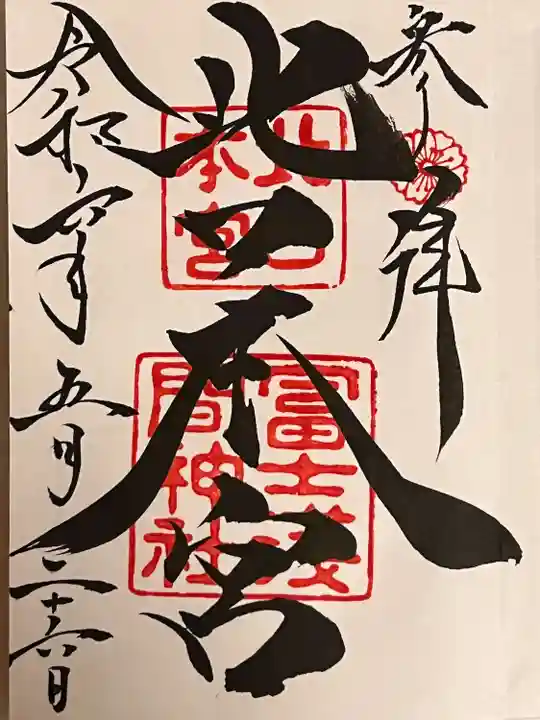 参拝
北口本宮
北口
本宮
冨士浅
間神社
令和六年五月二十六日